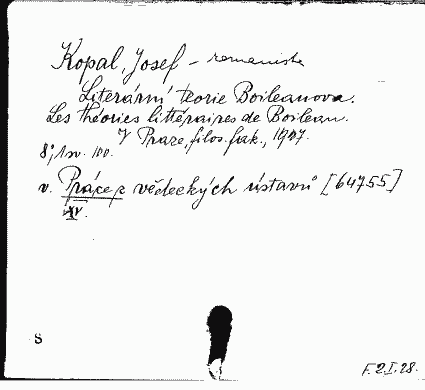 Kopal, Josef - romanista
Literární teorie Boileauova.
Les théories littéraires de Boileau.
V Praze, filos. fak., 1927.
8°, 1 sv. 100.
v. Práce z vědeckých ústavů [64755]
XV.
S
F.2.I.28.